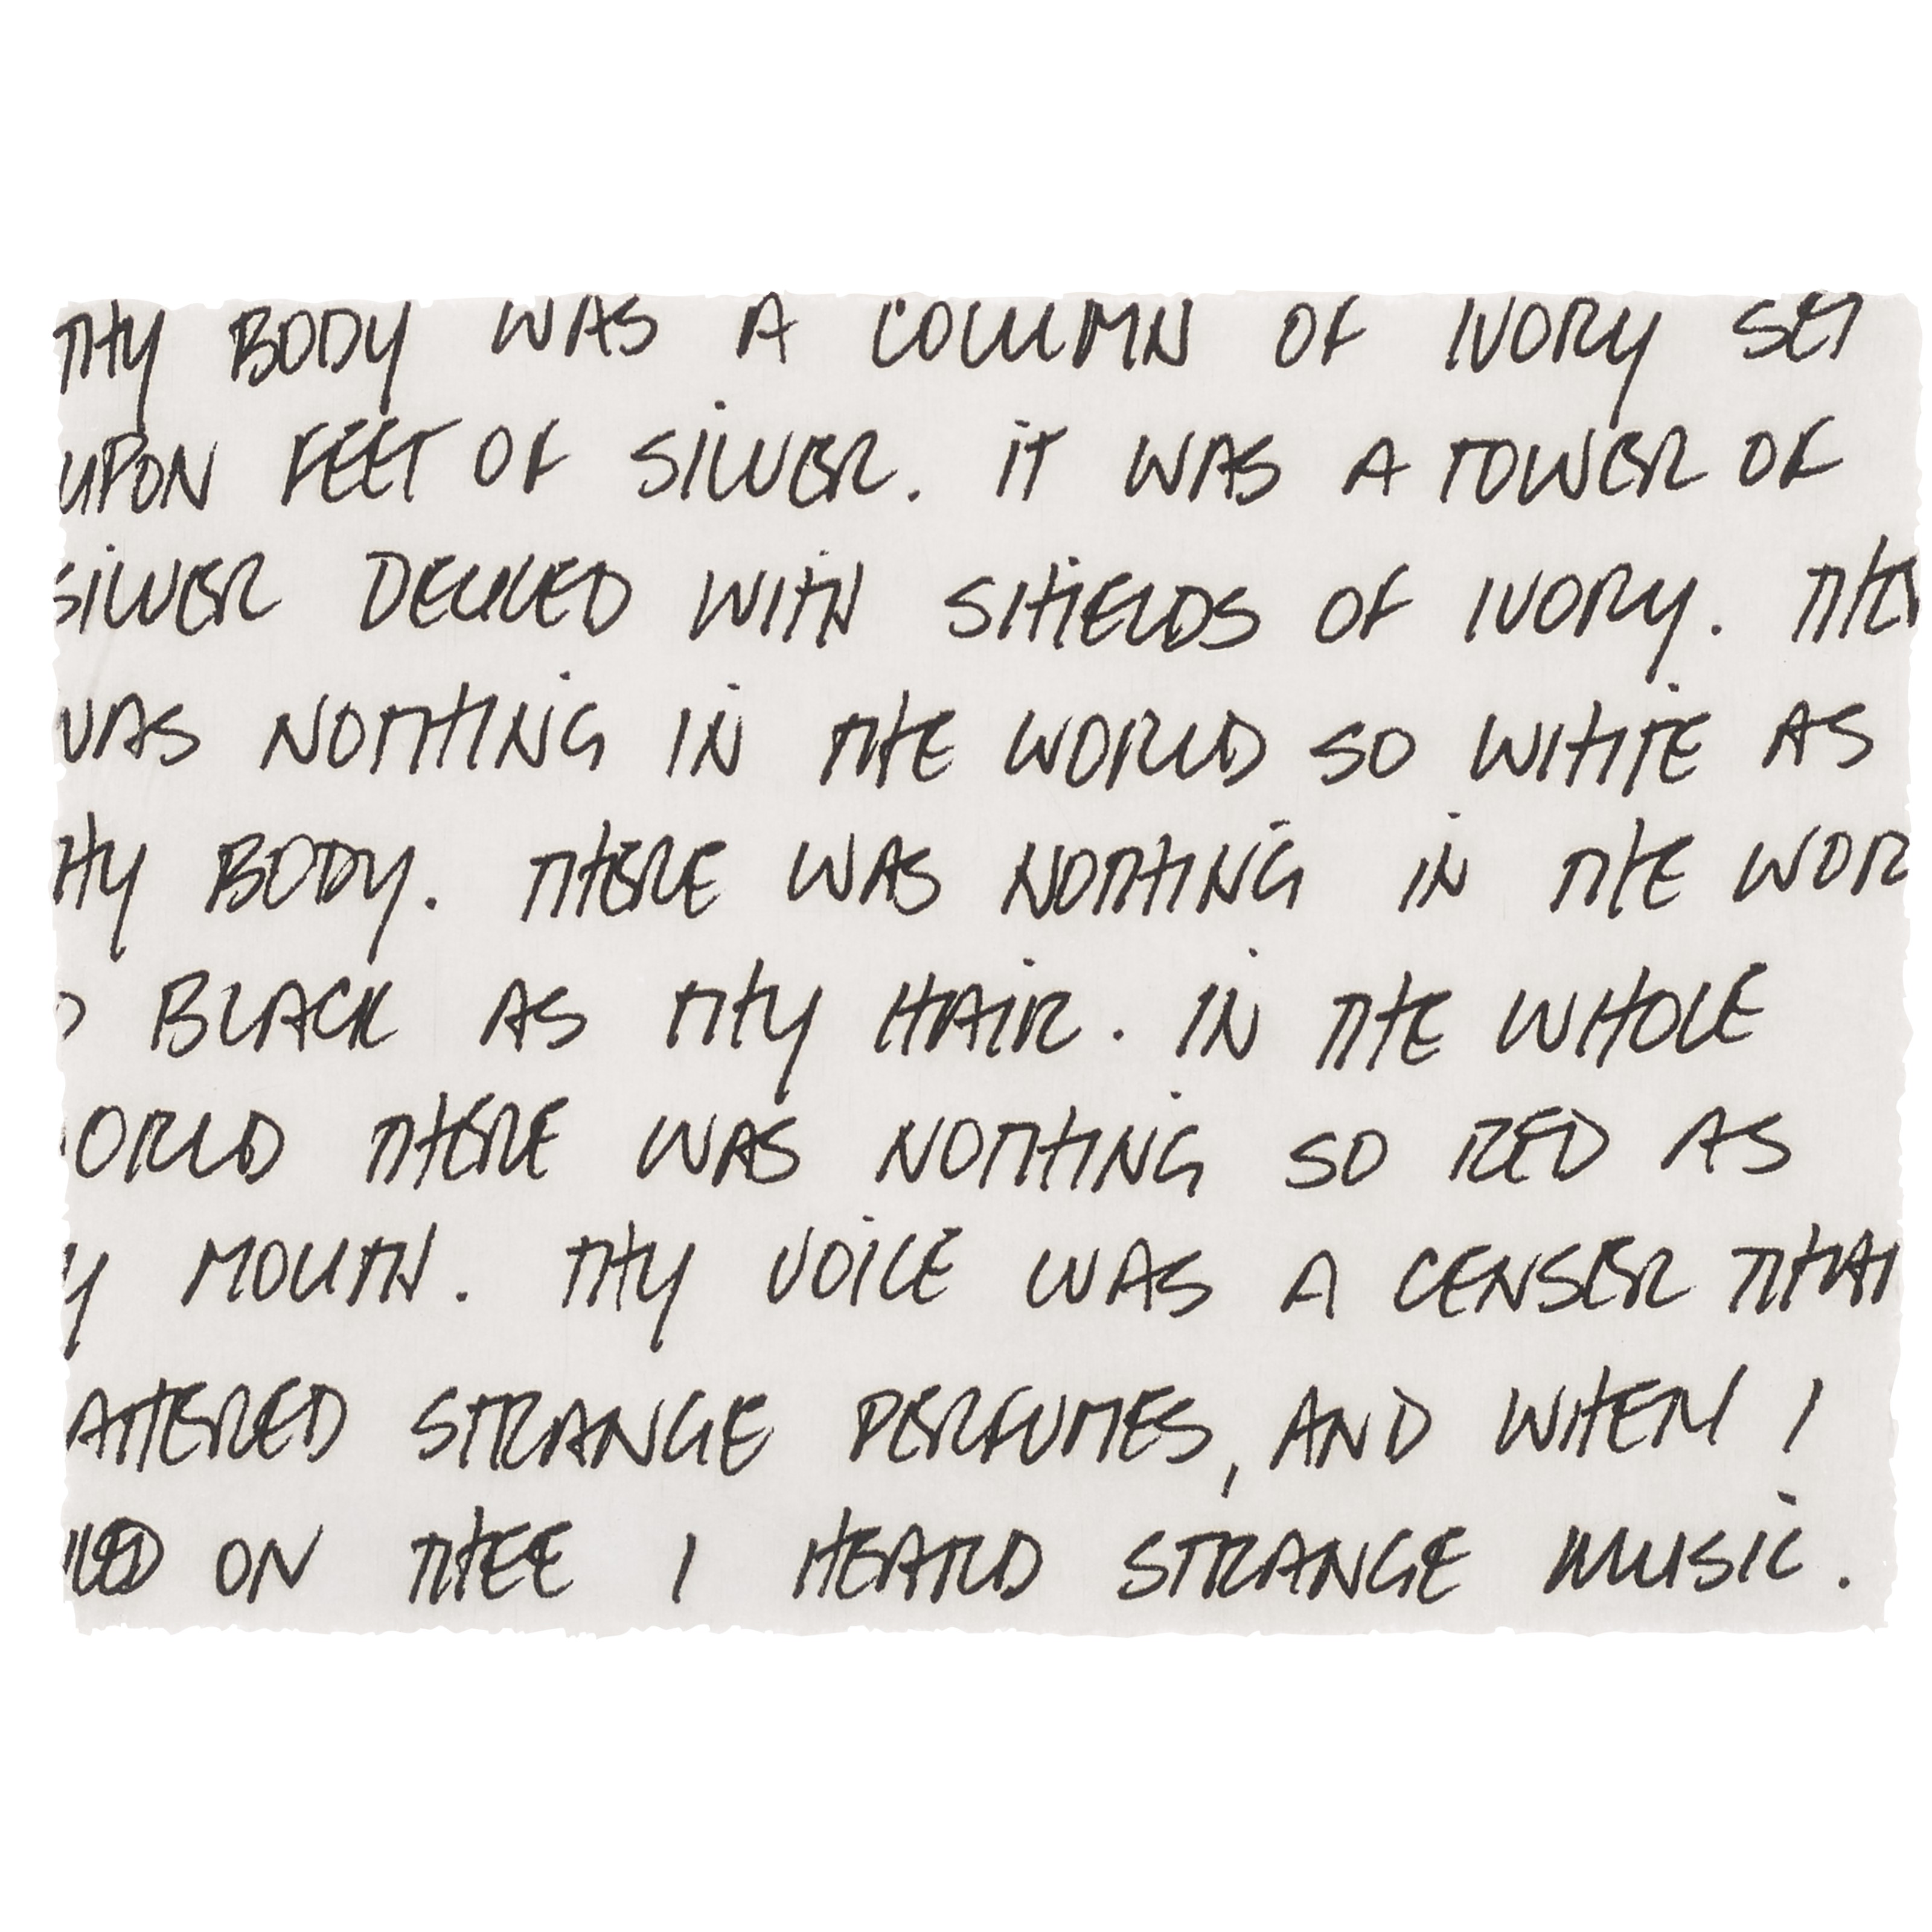 THY BODY WAS A COLUMN OF IVORY SET
UPON FEET OF SILVER. IT WAS A TOWER OF
SILVER DECKED WITH SHIELDS OF IVORY.
WAS NOTHING IN THE WORLD SO WHITE AS
THY BODY. THERE WAS NOTHING IN THE WOR
BLACK AS THY HAIR. IN THE WHOLE
ORLD THERE WAS NOTHING SO RED AS
Y MOUTH. THY VOICE WAS A CENSER THAT
ATTERED STRANGE PERFUMES, AND WHEN I
ON THEE I HEARD STRANGE MUSIC.